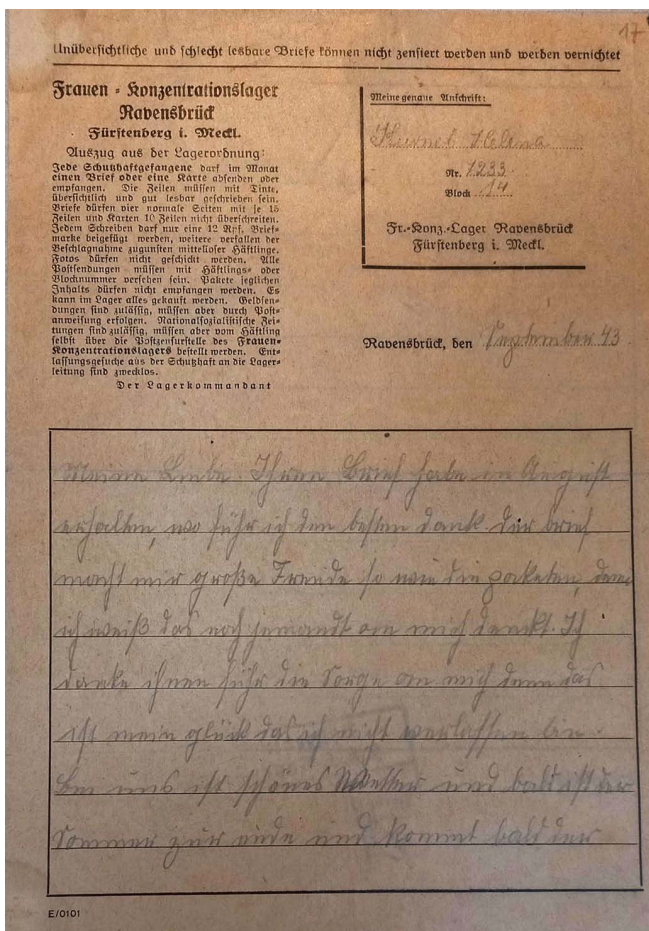 17
Unübersichtliche und schlecht lesbare Briefe können nicht zensiert werden und werden vernichtet
Frauen-Konzentrationslager
Ravensbrück
Fürstenberg i. Meckl.
Auszug aus der Lagerordnung:
Jede Schutzhaftgefangene darf im Monat
einen Brief oder eine Karte absenden oder
empfangen. Die Zeilen müssen mit Tinte,
übersichtlich und gut lesbar geschrieben sein.
Briefe dürfen vier normale Seiten mit je 15
Zeilen und Karten 10 Zeilen nicht überschreiten.
Jedem Schreiben darf nur eine 12 Rpf. Brief-
marke beigefügt werden, weitere verfallen der
Beschlagnahme zugunsten mittelloser Häftlinge.
Fotos dürfen nicht geschickt werden. Alle
Postsendungen müssen mit Häftlings- oder
Blocknummer versehen sein. Pakete jeglichen
Inhalts dürfen nicht empfangen werden. Es
kann im Lager alles gekauft werden. Geldsen-
dungen sind zulässig, müssen aber durch Post-
anweisung erfolgen. Nationalsozialistische Zei-
tungen sind zulässig, müssen aber vom Häftling
selbst über die Postzensurstelle des Frauen-
Konzentrationslagers bestellt werden. Ent-
lassungsgesuche aus der Schutzhaft an die Lager-
leitung sind zwecklos.
Der Lagerkommandant
Meine genaue Anschrift:
Helena
Nr. 7233
Block 14
Fr.-Konz.-Lager Ravensbrück
Fürstenberg i. Meckl.
Ravensbrück, den September 43
Meine Liebe. Ihren Brief habe in August
erhalten, wo führ ich den besten dank. Der brief
macht mir große Freude so wie die paketen, denn
ich weiß das noch jemandt an mich denckt. Ich
danke ihnen führ die Sorge an mich denn das
ist mein glück das ich nicht verlassen bin.
Bei uns ist schönes Wetter und bald ist der
Sommer zur ende und kommt bald der
E/0101